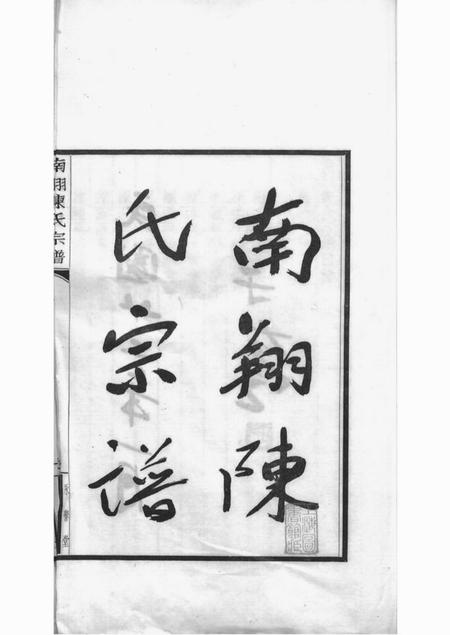 南翔陳
氏宗譜
南翔陳氏宗譜